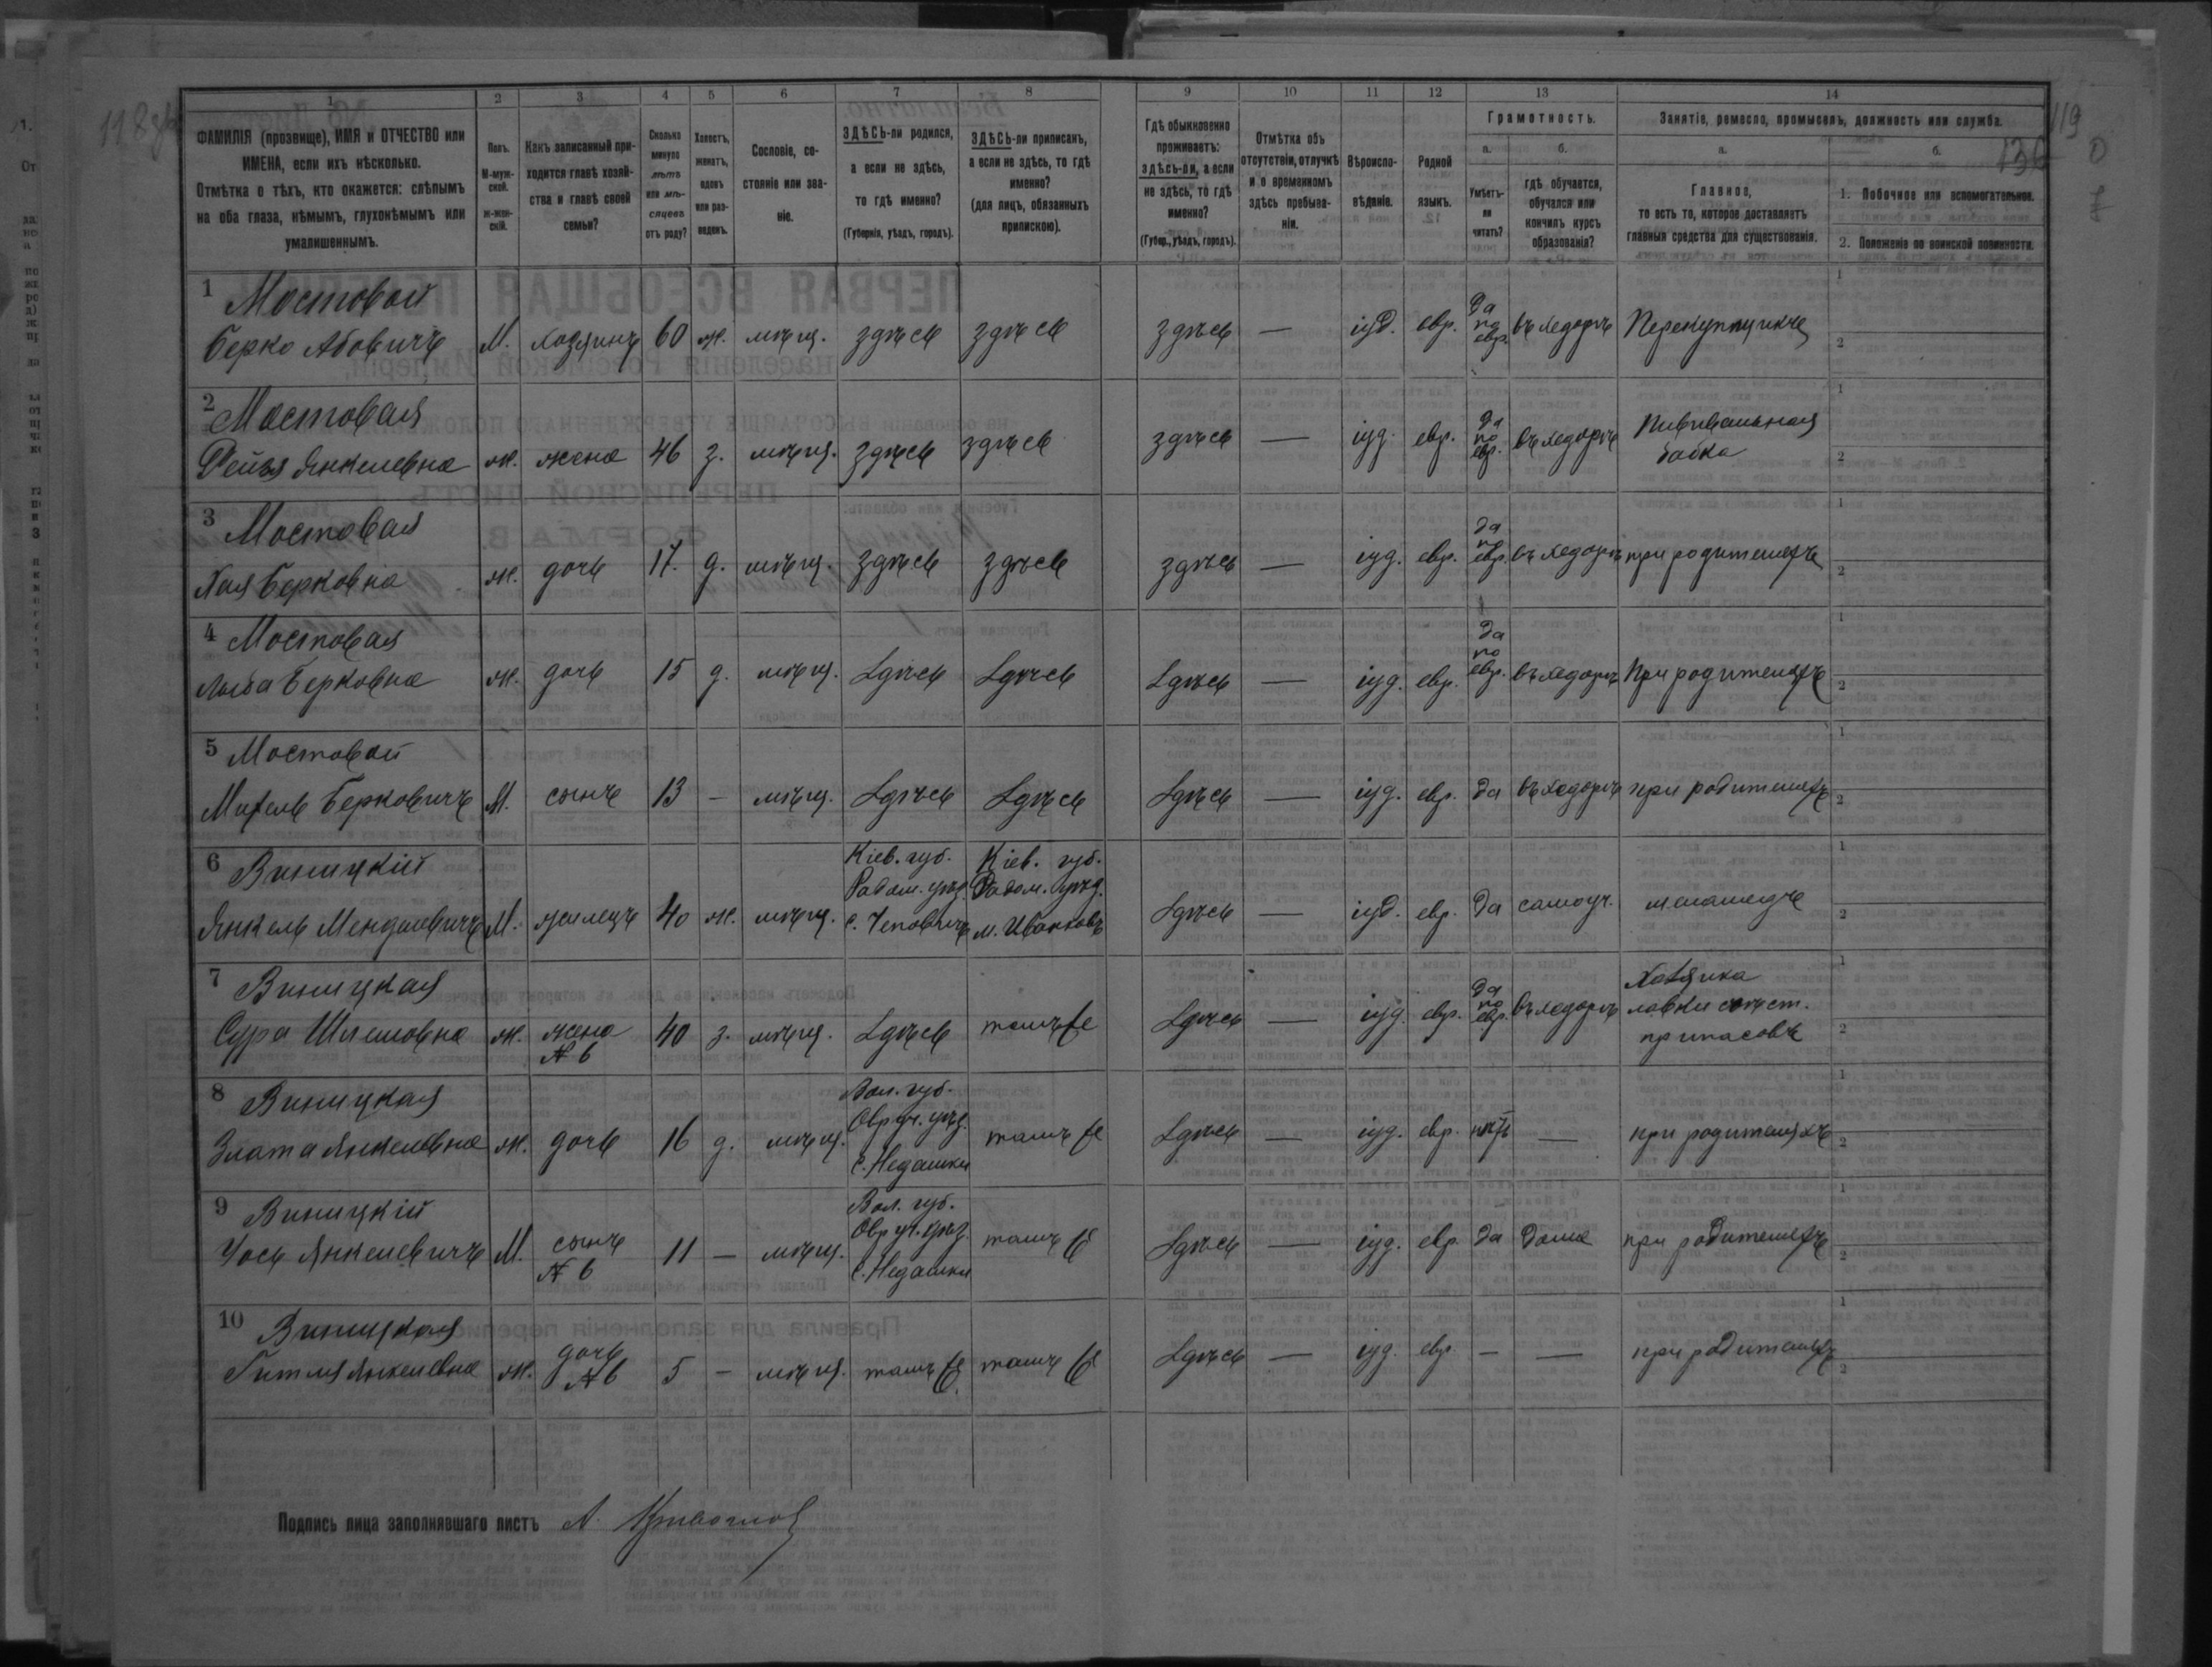 118
119
136
1
2
3
4
5
6
7
8
9
10
11
12
13
14
ФАМИЛІЯ (прозвище), ИМЯ и ОТЧЕСТВО или
ИМЕНА, если ихъ нѣсколько.
Отмѣтка о тѣхъ, кто окажется: слѣпымъ
на оба глаза, нѣмымъ, глухонѣмымъ или
умалишеннымъ.
Полъ.
М-муж-
ской.
ж-жен-
скій.
Какъ записанный при-
ходится главѣ хозяй-
ства и главѣ своей
семьи?
Сколько
минуло
лѣтъ
или мѣ-
сяцевъ
отъ роду?
Холостъ,
женатъ,
вдовъ
или раз-
веденъ.
Сословіе, со-
стояніе или зва-
ніе.
ЗДѢСЬ-ли родился,
а если не здѣсь,
то гдѣ именно?
(Губернія, уѣздъ, городъ).
ЗДѢСЬ-ли приписанъ,
а если не здѣсь, то гдѣ
именно?
(для лицъ, обязанныхъ
припискою).
Гдѣ обыкновенно
проживаетъ:
здѣсь-ли, а если
не здѣсь, то гдѣ
именно?
(Губер., уѣздъ, городъ).
Отмѣтка объ
отсутствіи, отлучкѣ
и о временномъ
здѣсь пребыва-
ніи.
Вѣроиспо-
вѣданіе.
Родной
языкъ.
Грамотность.
а.
Умѣетъ-
ли
читать?
б.
гдѣ обучается,
обучался или
кончилъ курсъ
образованія?
Занятіе, ремесло, промыселъ, должность или служба.
а.
Главное,
то есть то, которое доставляетъ
главныя средства для существованія.
б.
1. Побочное или вспомогательное.
2. Положеніе по воинской повинности.
1 Мостовой
Берко Абовичъ М. хозяинъ 60 ж. мѣщ. здѣсь здѣсь здѣсь — іуд. евр. да по евр. въ хедорѣ Перекупщикъ
2 Мостовая
Фейга Янкелевна ж. жена 46 з. мѣщ. здѣсь здѣсь здѣсь — іуд. евр. да по евр. въ хедорѣ Пививальная
бабка
3 Мостовая
Хая Берковна ж. дочь 17. д. мѣщ. здѣсь здѣсь здѣсь — іуд. евр. да по евр. въ хедорѣ при родителяхъ
4 Мостовая
Берковна ж. дочь 15 д. мѣщ. Здѣсь Здѣсь Здѣсь — іуд. евр. да по евр. въ хедорѣ При родителяхъ
5 Мостовой
Михель Берковичъ М. сынъ 13 — мѣщ. Здѣсь Здѣсь Здѣсь — іуд. евр. да въ хедорѣ при родителяхъ
6 Виницкій
Янкель Менделевичъ М. жилецъ 40 ж. мѣщ. Кіев. губ.
Радом. уѣзд.
с. Чеповичъ
Кіев. губ.
Радом. уѣзд.
м. Иванковъ
Здѣсь — іуд. евр. да самоуч. меламедъ
7 Виницкая
Сура Шлемовна ж. жена
№ 6 40 з. мѣщ. Здѣсь тамъ же Здѣсь — іуд. евр. да по евр. въ хедорѣ Хозяйка
лавки съѣст.
припасовъ
8 Виницкая
Злата Янкелевна ж. дочь 16 д. мѣщ. Вол. губ.
Овруч. уѣзд.
с. Недашки
тамъ же Здѣсь — іуд. евр. нѣтъ — при родителяхъ
9 Виницкій
Іось Янкелевичъ М. сынъ
№ 6 11 — мѣщ. Вол. губ.
Овруч. уѣзд.
с. Недашки
тамъ же Здѣсь — іуд. евр. да дома при родителяхъ
10 Виницкая
Гитля Янкелевна ж. дочь
№ 6 5 — мѣщ. тамъ же тамъ же Здѣсь — іуд. евр. — — при родителяхъ
Подпись лица заполнявшаго листъ